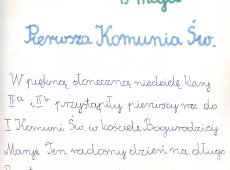 15 maja
Pierwsza Komunia Św.
W piękną słoneczną niedzielę klasy
IIa i IIb przystąpiły pierwszy raz do
I Komuni Św. w kościele Bogurodzicy
Maryi. Ten radosny dzień na długo